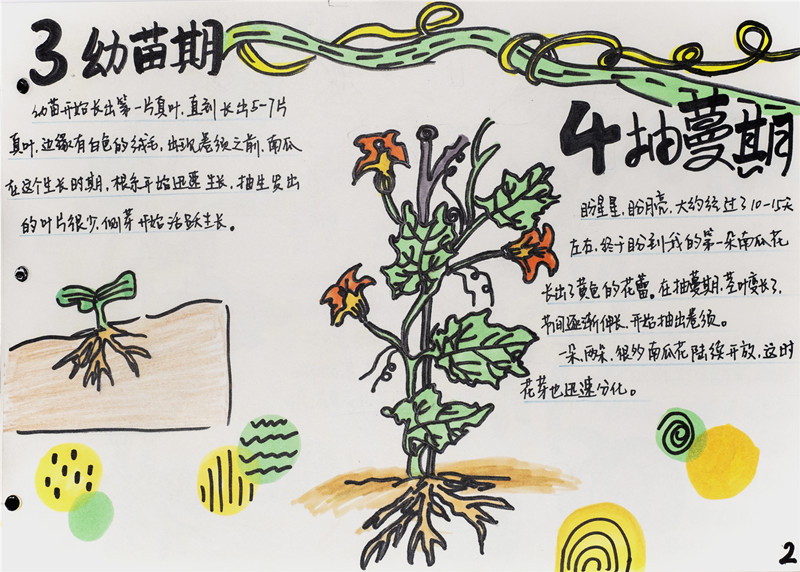 3 幼苗期
幼苗开始长出第一片真叶,直到长出5-7片
真叶,边缘有白色的绒毛,出现卷须之前,南瓜
在这个生长时期,根系开始迅速生长,抽生发出
的叶片很少,侧芽开始活跃生长。
4 抽蔓期
盼星星,盼月亮,大约经过了10-15天
左右,终于盼到我的第一朵南瓜花
长出了黄色的花蕾。在抽蔓期,茎叶变长了,
节间逐渐伸长,开始抽出卷须。
一朵,两朵,很多南瓜花陆续开放,这时
花芽也迅速分化。
2